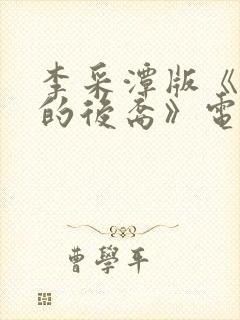 李采潭版《
的後裔》電
曹學平